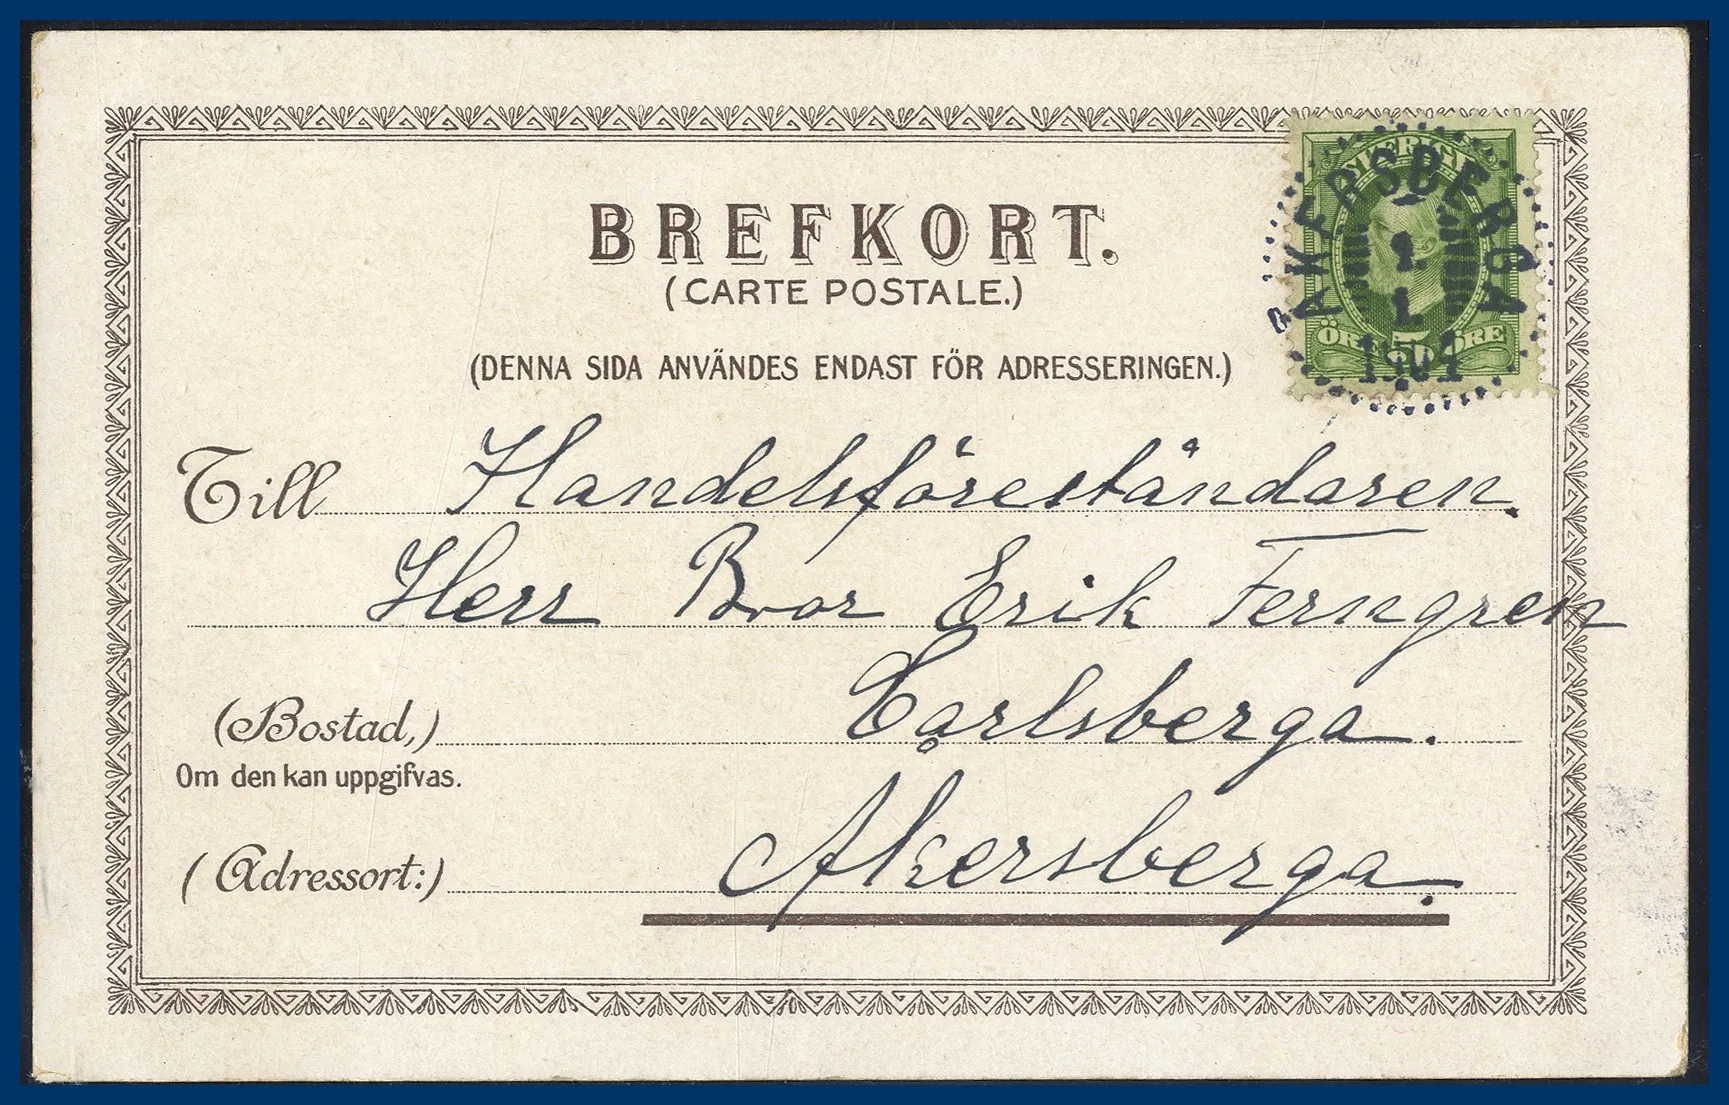 BREFKORT.
(CARTE POSTALE.)
(DENNA SIDA ANVÄNDES ENDAST FÖR ADRESSERINGEN.)
SVERIGE
ÖRE 5 ÖRE
AKERSBERGA
1
1
1904
Till Handelsföreståndaren.
Herr Bror Erik Ferngren
(Bostad,) Carlsberga.
Om den kan uppgifvas.
(Adressort:) Åkersberga.